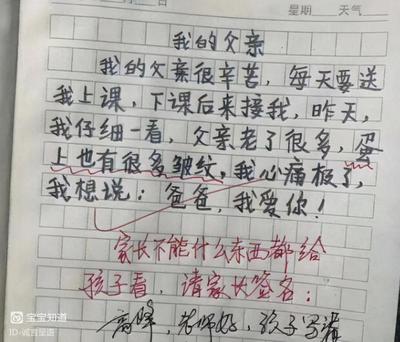 星期 天气
我的父亲
我的父亲很辛苦，每天要送
我上课，下课后来接我，昨天，
我仔细一看，父亲老了很多，蛋
上也有很多皱纹，我心痛极了，
我想说：爸爸，我爱你！
家长不能什么东西都给
孩子看，请家长签名：
高峰，老师好，孩子写
宝宝知道